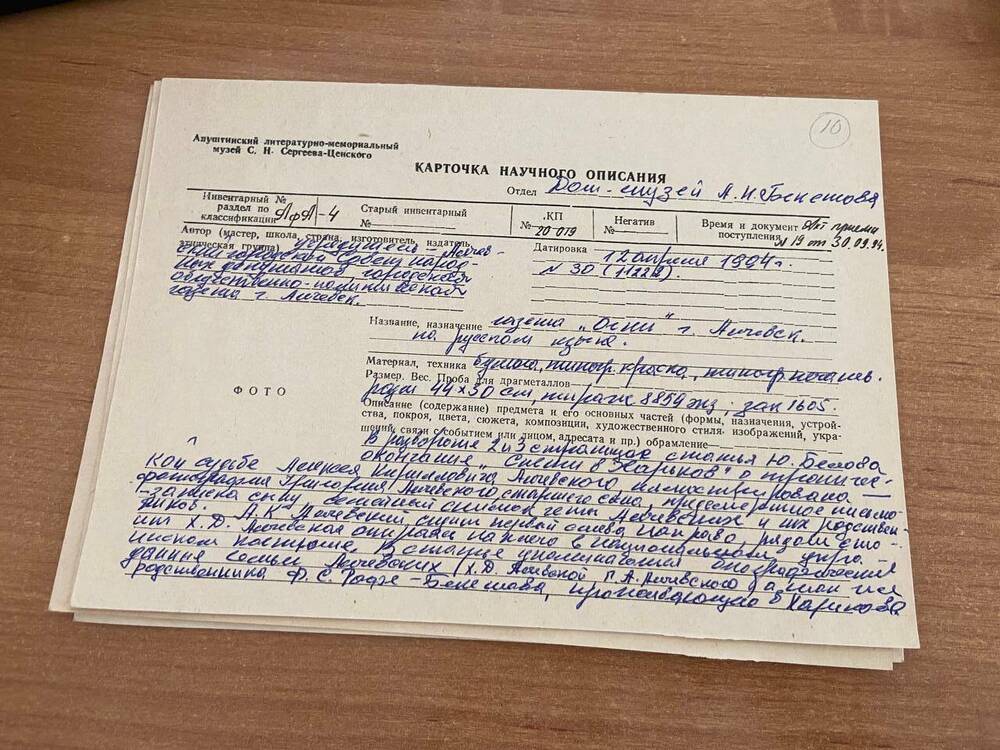 10
Алуштинский литературно-мемориальный
музей С. Н. Сергеева-Ценского
КАРТОЧКА НАУЧНОГО ОПИСАНИЯ
Отдел Дом-музей А.Н. Бекетова
Инвентарный №
раздел по
классификации АфА-4
Старый инвентарный
№
КП
№ 20-019
Негатив
№
Время и документ Акт приемки
поступления № 19 от 30.09.94.
Автор (мастер, школа, страна, изготовитель, издатель,
этническая группа) учредитель – Алчев-
ский городской Совет народ-
ных депутатов, городская
общественно-политическая
газета г. Алчевск.
Датировка 12 апреля 1994 г.
№ 30 (11228)
Название, назначение газета „Огни" г. Алчевск.
на русском языке.
Материал, техника бумага, типогр. краска, типогр. печать.
Размер. Вес. Проба для драгметаллов
разм 44х30 см, тираж 8859 экз; зак 1605.
Описание (содержание) предмета и его основных частей (формы, назначения, устрой-
ства, покроя, цвета, сюжета, композиции, художественного стиля изображений, укра-
шений, связи с событием или лицом, адресата и пр.) обрамление
ФОТО
В развороте 2 и 3 страницы статья Ю. Белова
окончание „ в Харьков" о трагичес-
кой судьбе Алексея Кирилловича Алчевского, иллюстрирована –
фотография Григория Алчевского старшего сына, предсмертное письмо
-записка сыну, семейный снимок четы Алчевских и их родствен-
ников. А.К. Алчевский сидит первый слева направо, рядом сто-
ит Х.Д. Алчевская опираясь на него в национальном укра-
инском костюме. В статье упоминания биографические
данные семьи Алчевских (Х.Д. Алчевской, Г.А. Алчевского) а также
родственника Ф.С. Рофе-Бекетова, проживающего в Харькове